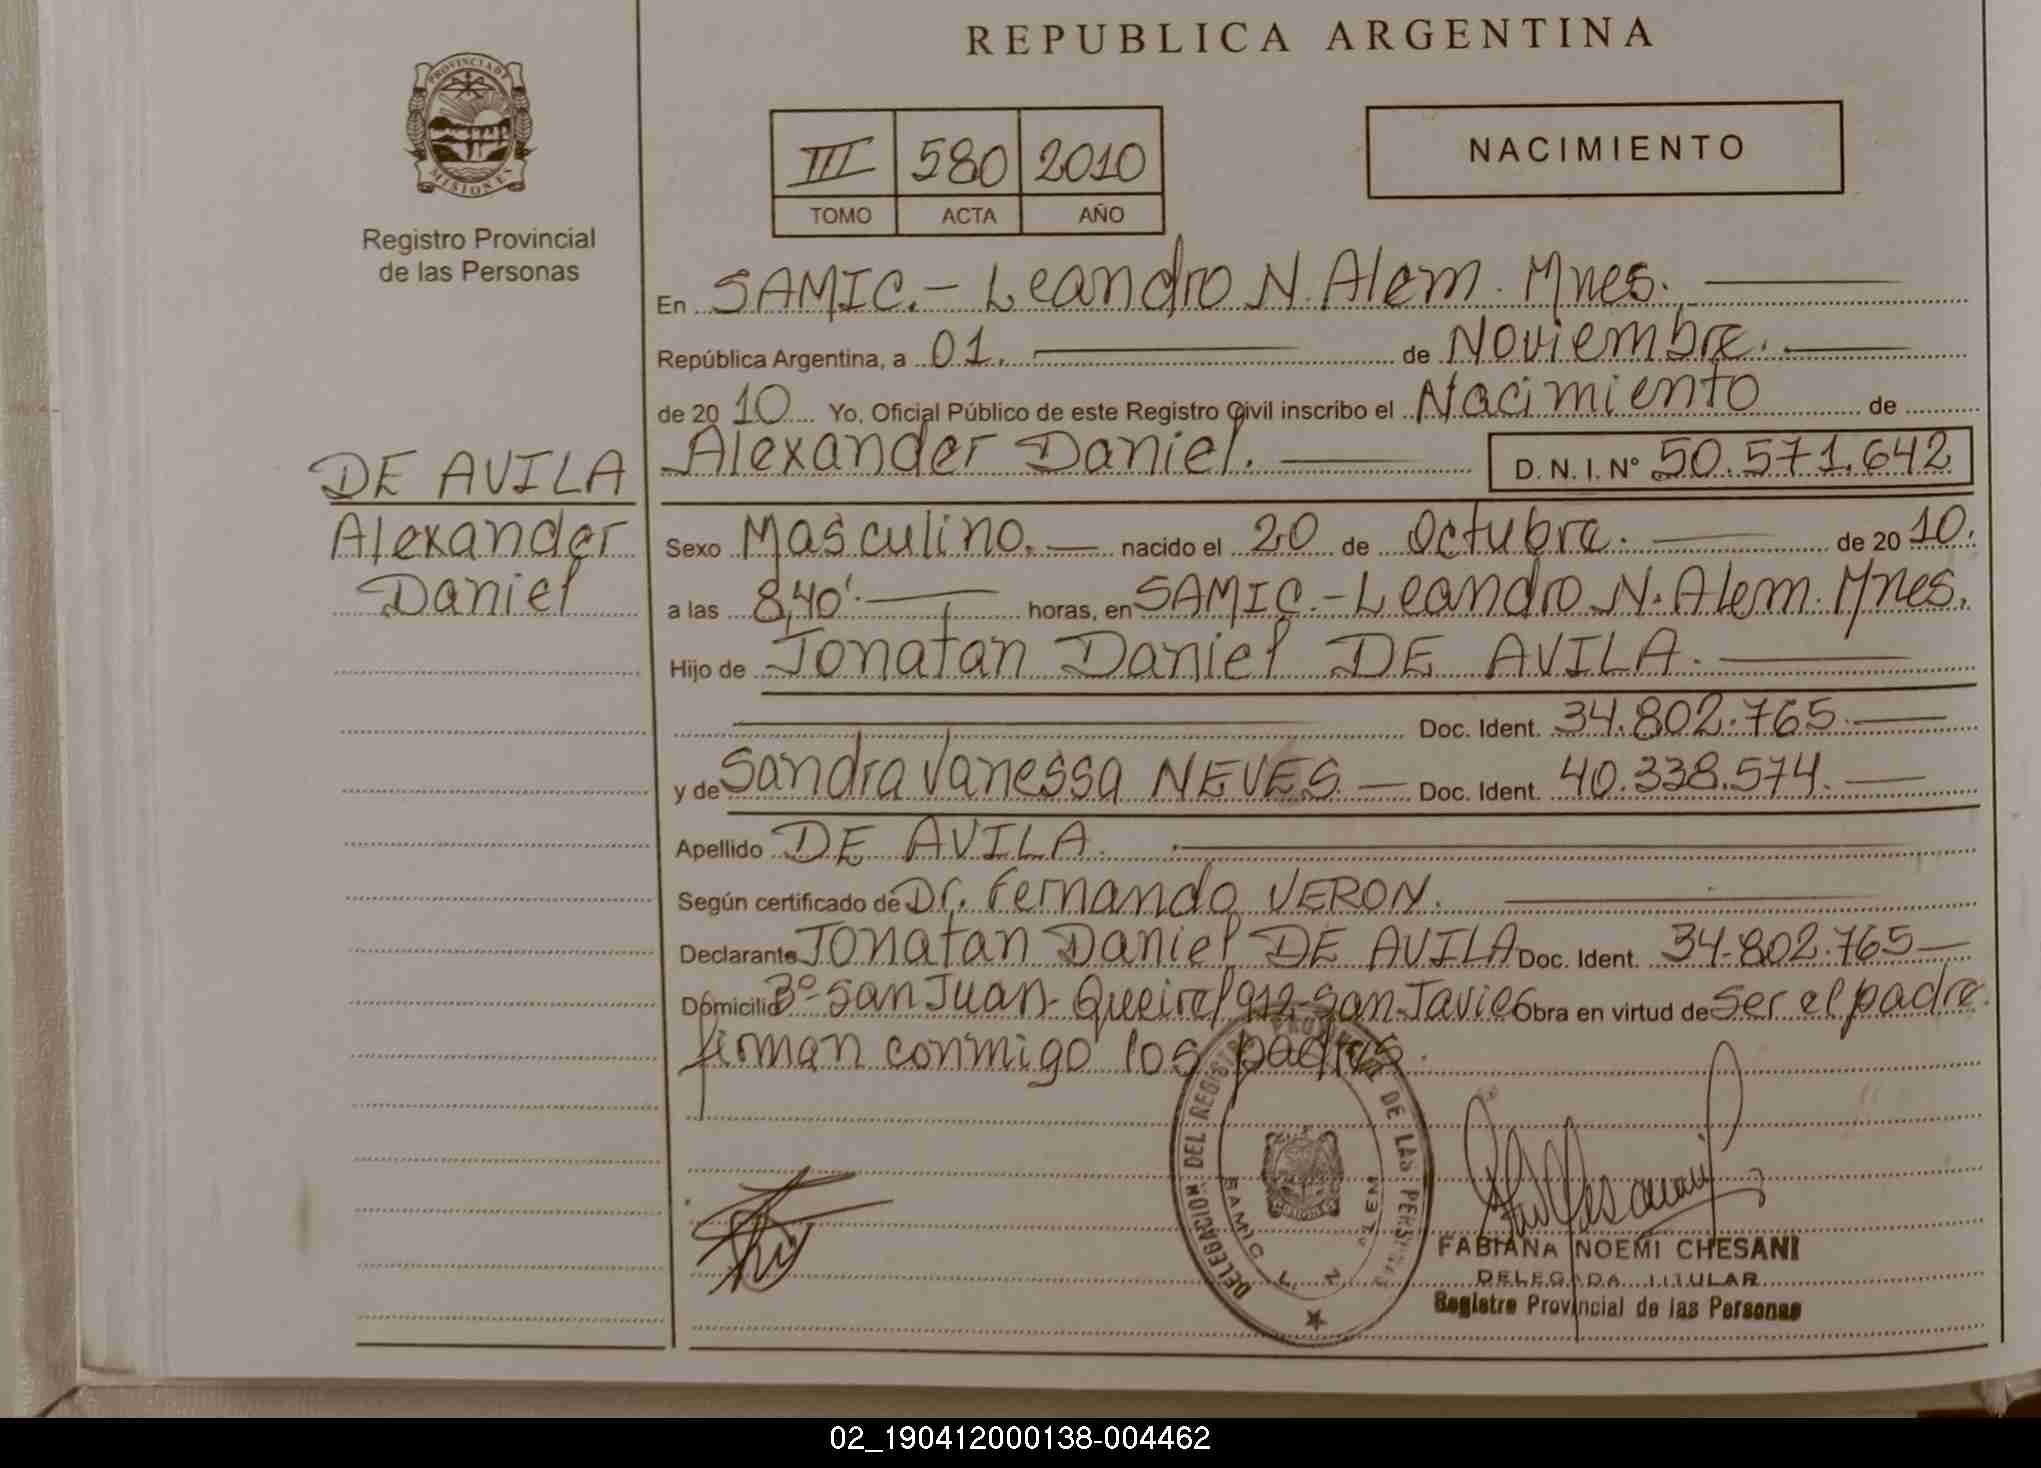 REPUBLICA ARGENTINA
PROVINCIA DE
MISIONES
Registro Provincial
de las Personas
III 580 2010
TOMO ACTA AÑO
NACIMIENTO
En SAMIC.- Leandro N. Alem. Mnes.
República Argentina, a 01. de Noviembre.
de 20 10 Yo, Oficial Público de este Registro Civil inscribo el Nacimiento de
DE AVILA
Alexander
Daniel
Alexander Daniel. D. N. I. N° 50.571.642
Sexo Masculino. nacido el 20 de Octubre. de 20 10.
a las 8,40'. horas, en SAMIC.- Leandro N. Alem. Mnes.
Hijo de Jonatan Daniel DE AVILA.
Doc. Ident. 34.802.765.
y de Sandra Vanessa NEVES. Doc. Ident. 40.338.574.
Apellido DE AVILA.
Según certificado de Dr. Fernando VERON.
Declarante Jonatan Daniel DE AVILA Doc. Ident. 34.802.765
Domicilio Bº San Juan- Queirel 912- San Javier Obra en virtud de ser el padre.
firman conmigo los padres.
DELEGACIÓN DEL REGISTRO PROVINCIAL DE LAS PERSONAS
SAMIC L. N.
FABIANA NOEMI CHESANI
DELEGADA TITULAR
Registro Provincial de las Personas
02_190412000138-004462